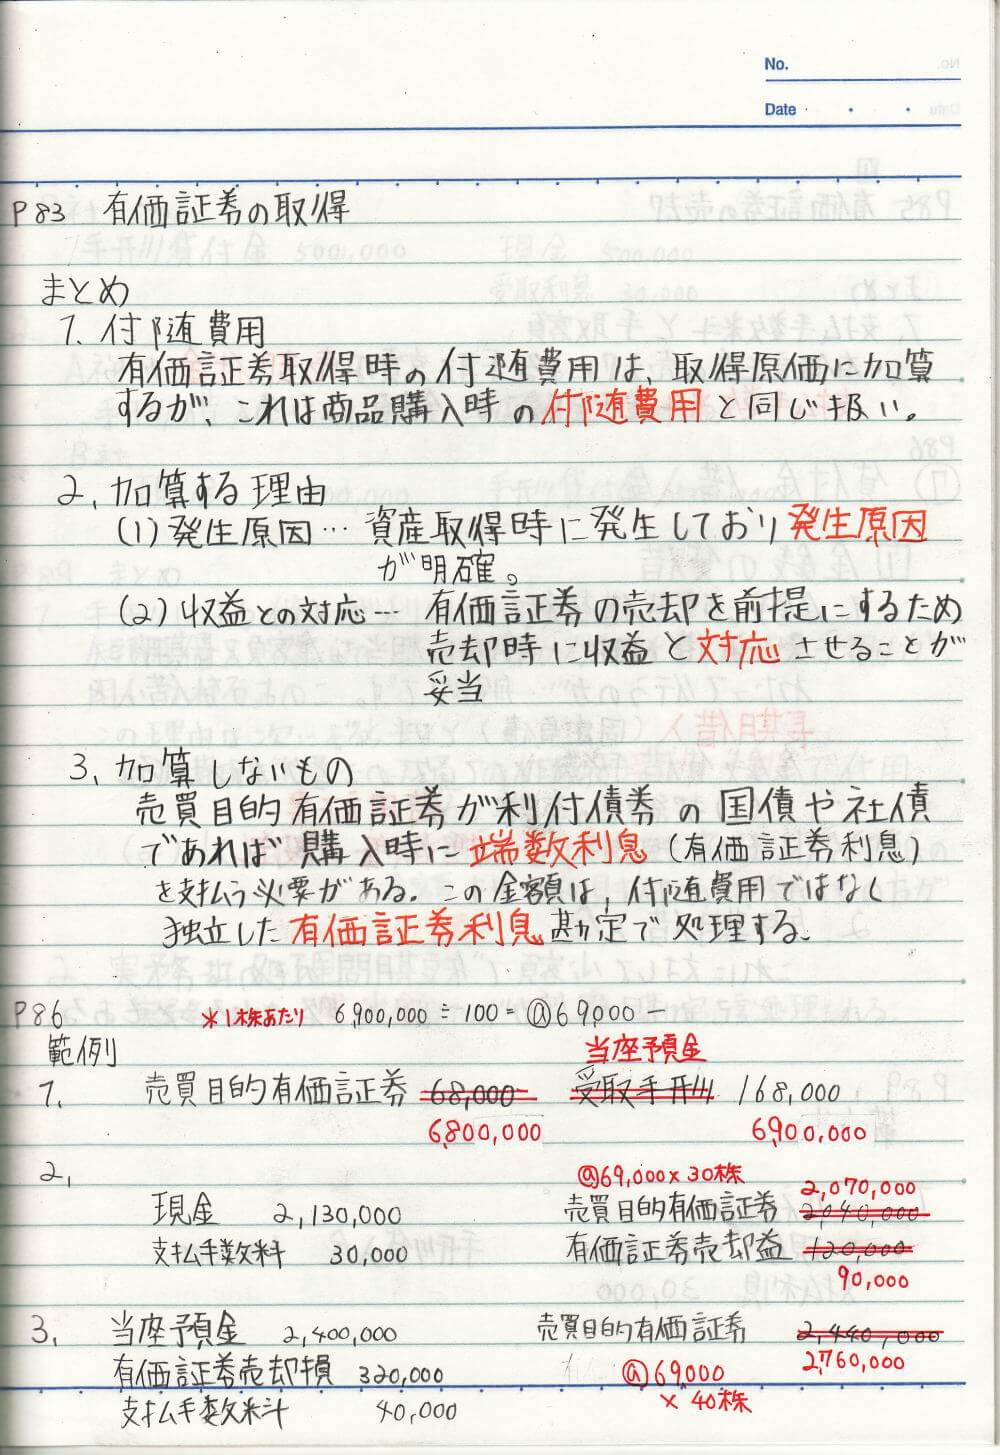 No.
Date
P83 有価証券の取得
まとめ
1. 付随費用
有価証券取得時の付随費用は、取得原価に加算
するが、これは商品購入時の付随費用と同じ扱い。
2、加算する理由
(1)発生原因… 資産取得時に発生しており発生原因
が明確。
(2)収益との対応… 有価証券の売却を前提にするため
売却時に収益と対応させることが
妥当
3、加算しないもの
売買目的有価証券が利付債券の国債や社債
であれば購入時に端数利息(有価証券利息)
を支払う必要がある。この金額は、付随費用ではなく
独立した有価証券利息勘定で処理する。
P86 *1株あたり 6,900,000 ÷ 100 = @69,000 ー
範例
当座預金
1. 売買目的有価証券 68,000 受取手形 168,000
6,800,000 6,900,000
2,
@69,000×30株 2,070,000
現金 2,130,000 売買目的有価証券 2,040,000
支払手数料 30,000 有価証券売却益 120,000
90,000
3. 当座預金 2,400,000 売買目的有価証券 2,440,000
有価証券売却損 320,000 @69,000 2,760,000
支払手数料 40,000 × 40株